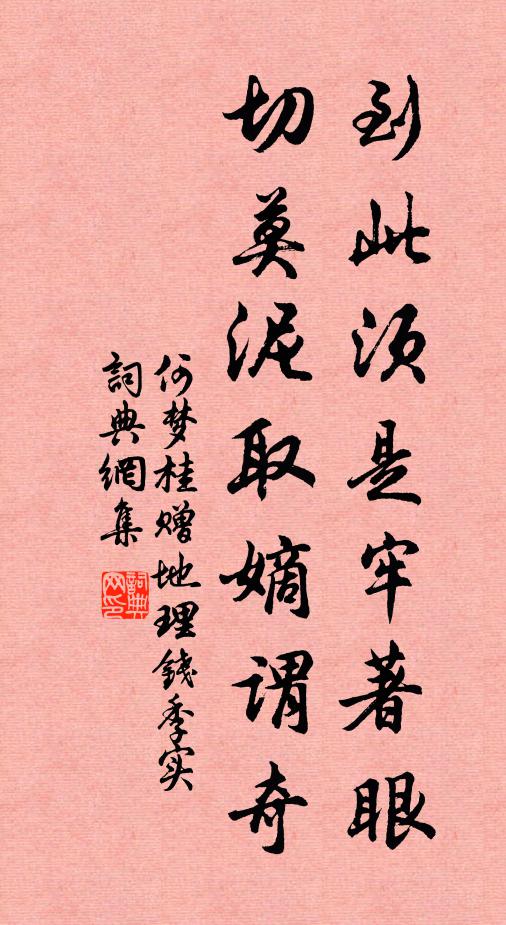 到此须是牢著眼
切莫泥取嫡谓奇
何梦桂赠地理钱季实
詞典網集
詞典网印